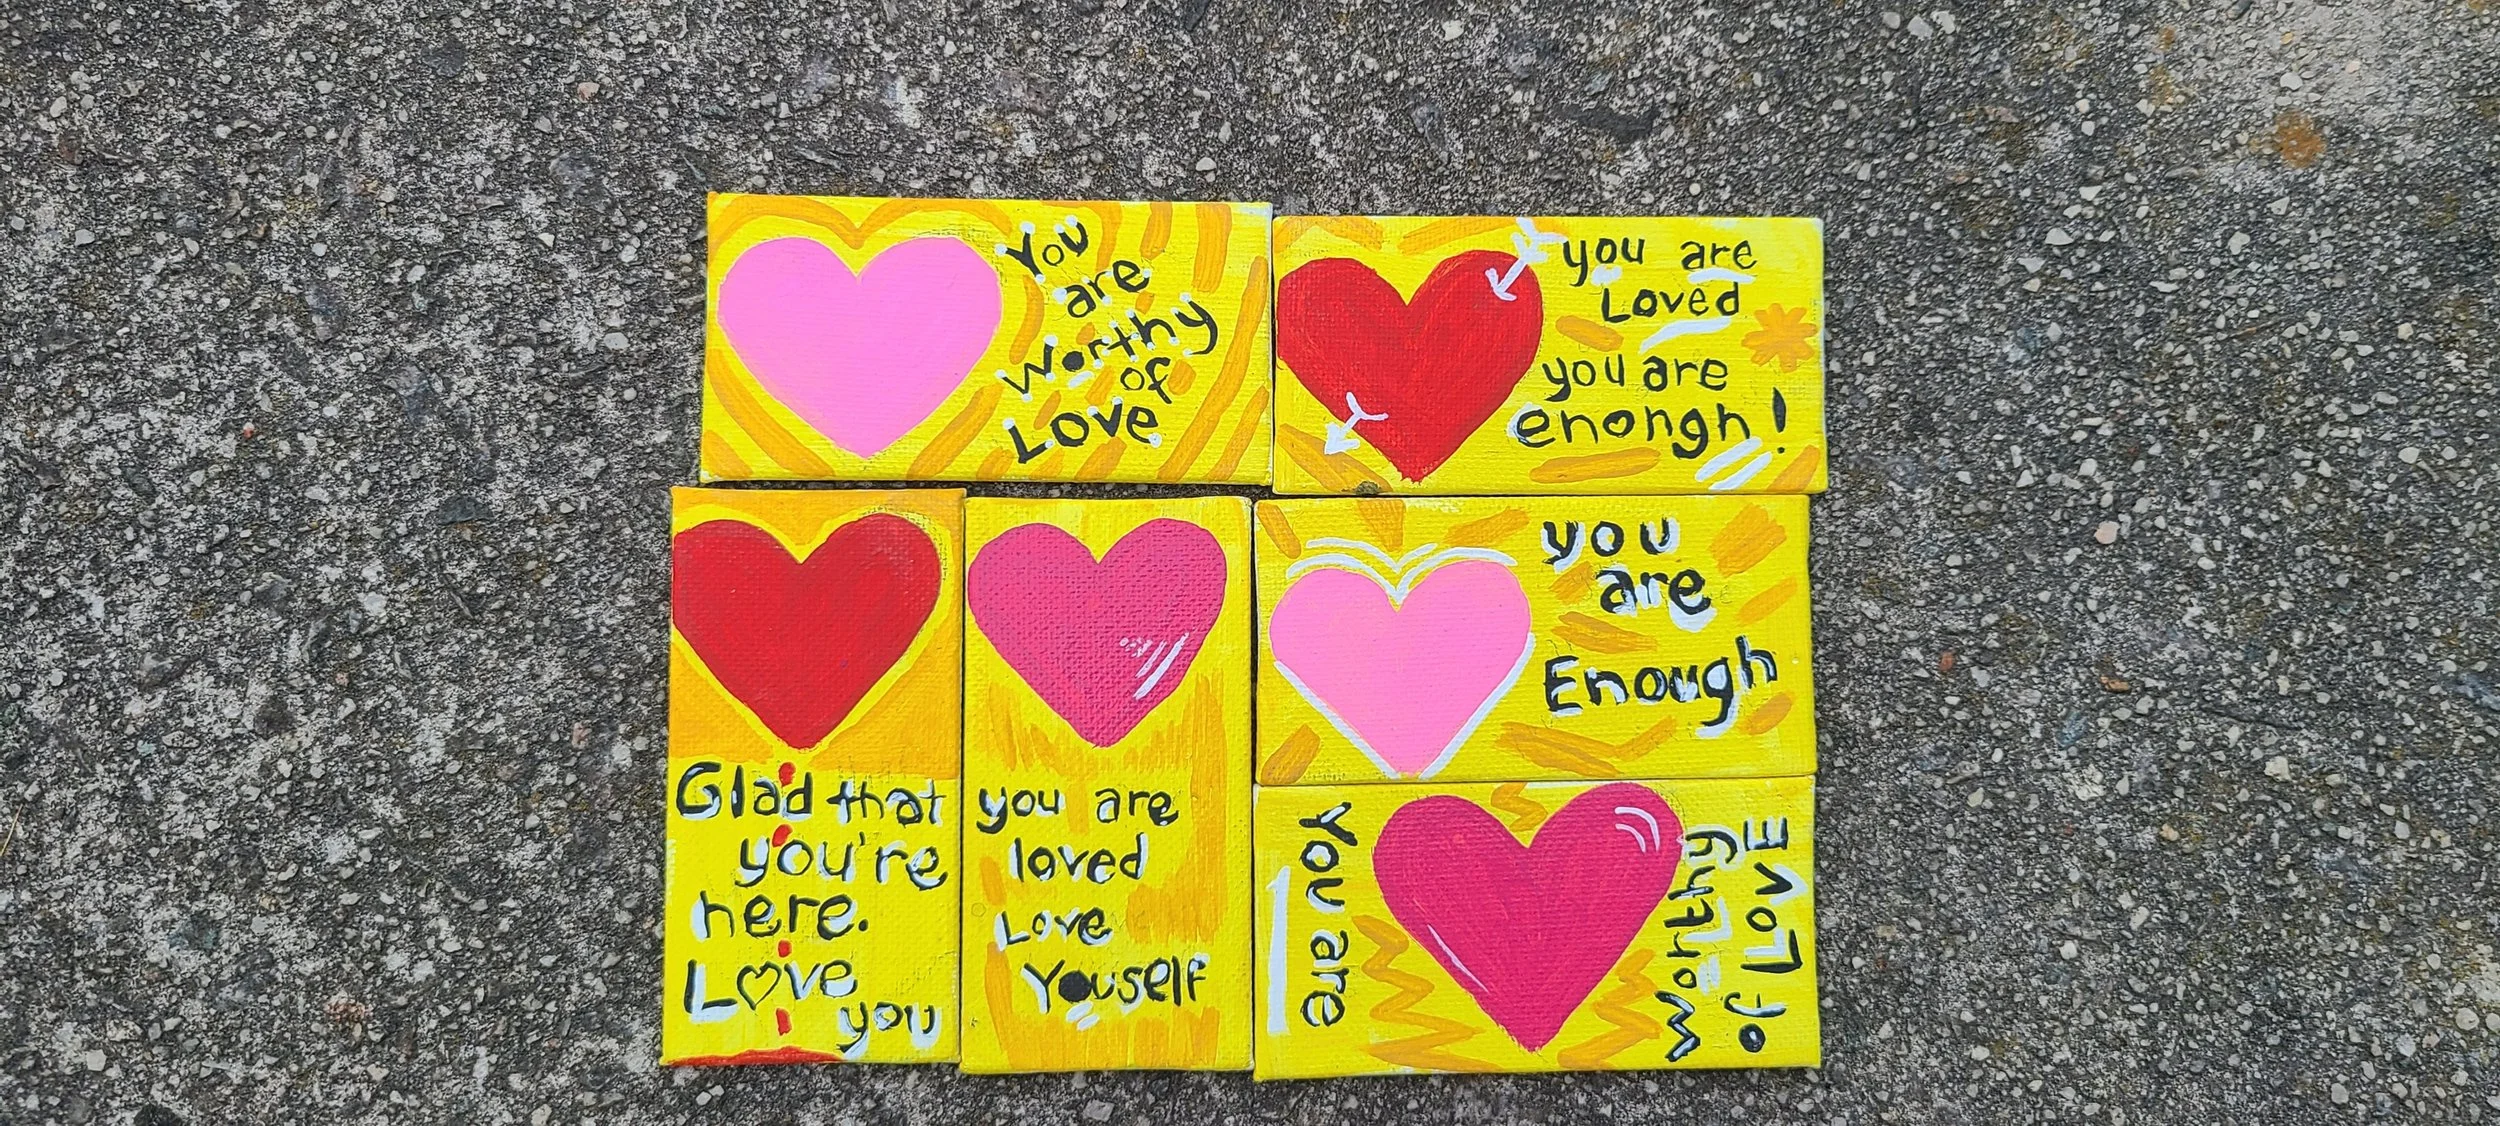 You
are
Worthy
of
Love
you are
Loved
you are
enongh!
Glad that
you're
here.
Love
you
you are
loved
Love
Youself
you
are
Enough
You are
worthy
of LovE